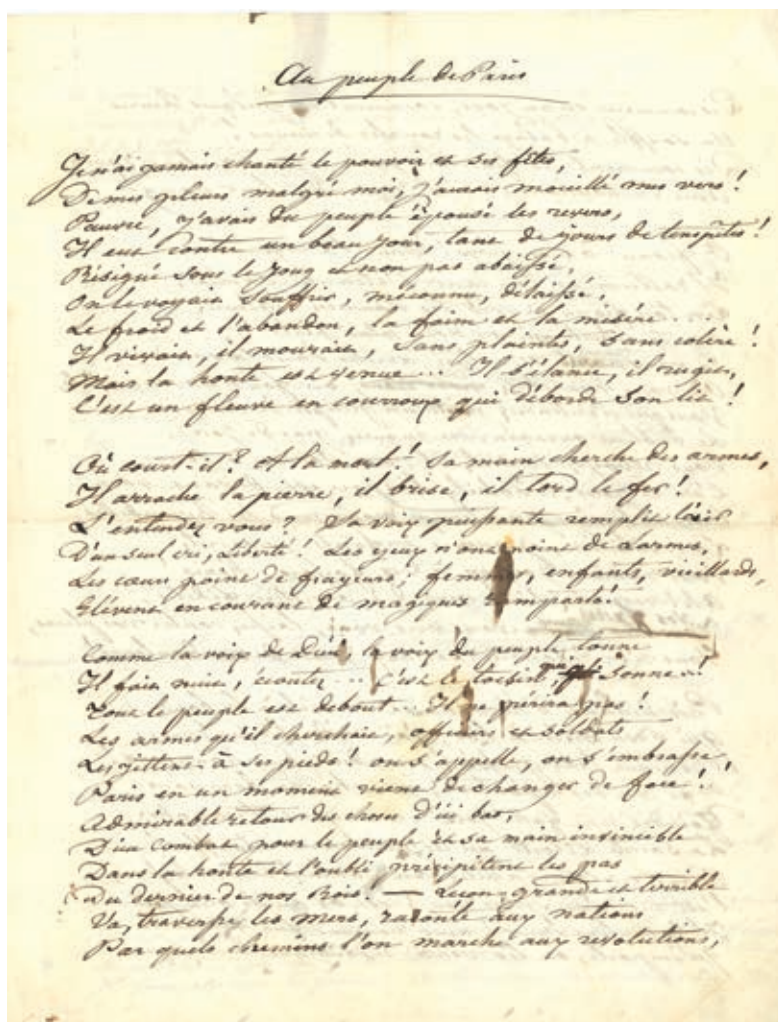 Au peuple de Paris
Je n'ai jamais chanté le pouvoir et ses fêtes,
De mes pleurs malgré moi, j'aurais mouillé mes vers !
Pauvre, j'avais du peuple épousé les revers,
Il eut contre un beau jour, tant de jours de tempêtes !
Résigné sous le joug et non pas abaissé,
On le voyait souffrir, méconnu, délaissé,
Le froid et l'abandon, la faim et la misère ...
Il vivait, il mourait, sans plaintes, sans colère !
Mais la honte est venue ... Il s'élance, il rugit,
C'est un fleuve en courroux qui déborde son lit !
Où court-il ? A la mort ! Sa main cherche des armes,
Il arrache la pierre, il brise, il tord le fer !
L'entendez vous ? Sa voix puissante remplit l'air
D'un seul cri, Liberté ! Les yeux n'ont point de larmes,
Les cœurs point de frayeurs ; femmes, enfants, vieillards,
Elèvent en courant de magiques remparts !
Comme la voix de Dieu, la voix du peuple tonne
Il fait nuit, écoutez ... C'est le tocsin qui sonne !
Tout le peuple est debout ... Il ne périra pas !
Les armes qu'il cherchait, officiers et soldats
Les jettent à ses pieds ! on s'appelle, on s'embrasse,
Paris en un moment vient de changer de face !
Admirable retour des choses d'ici bas,
Dieu combat pour le peuple et sa main invincible
Dans la honte et l'oubli précipitent les pas
Du dernier de nos Rois ! — Leçon grande et terrible
Va, traverse les mers, raconte aux nations
Par quels chemins l'on marche aux revolutions,